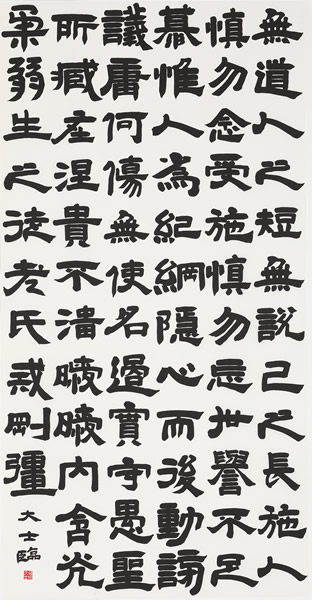 無道人之短無說己之長施人
慎勿念受施慎勿忘世譽不足
慕惟人為紀綱隱心而後動謗
議庸何傷無使名過實守愚聖
所臧在涅貴不淄曖曖內含光
柔弱生之徒老氏戒剛彊
大士臨